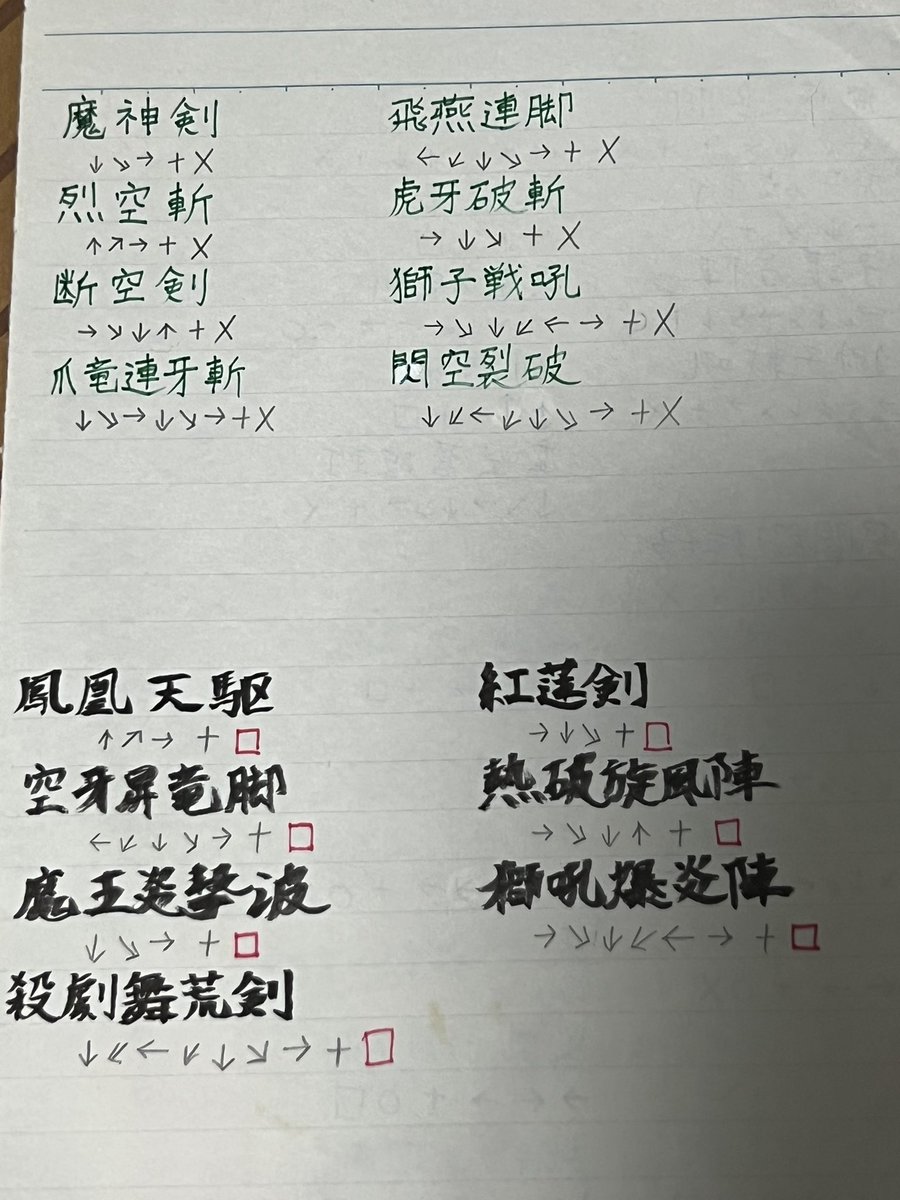 魔神剣
↓↘→+X
烈空斬
↑↗→+X
断空剣
→↘↓↑+X
爪竜連牙斬
↓↘→↓↘→+X
飛燕連脚
←↙↓↘→+X
虎牙破斬
→↓↘+X
獅子戦吼
→↘↓↙←→+X
閃空裂破
↓↙←↙↓↘→+X
鳳凰天駆
↑↗→+□
空牙昇竜脚
←↙↓↘→+□
魔王炎撃波
↓↘→+□
殺劇舞荒剣
↓↙←↙↓↖←+□
紅蓮剣
→↓↘+□
熱破旋風陣
→↘↓↑+□
獅吼爆炎陣
→↘↓↙←→+□